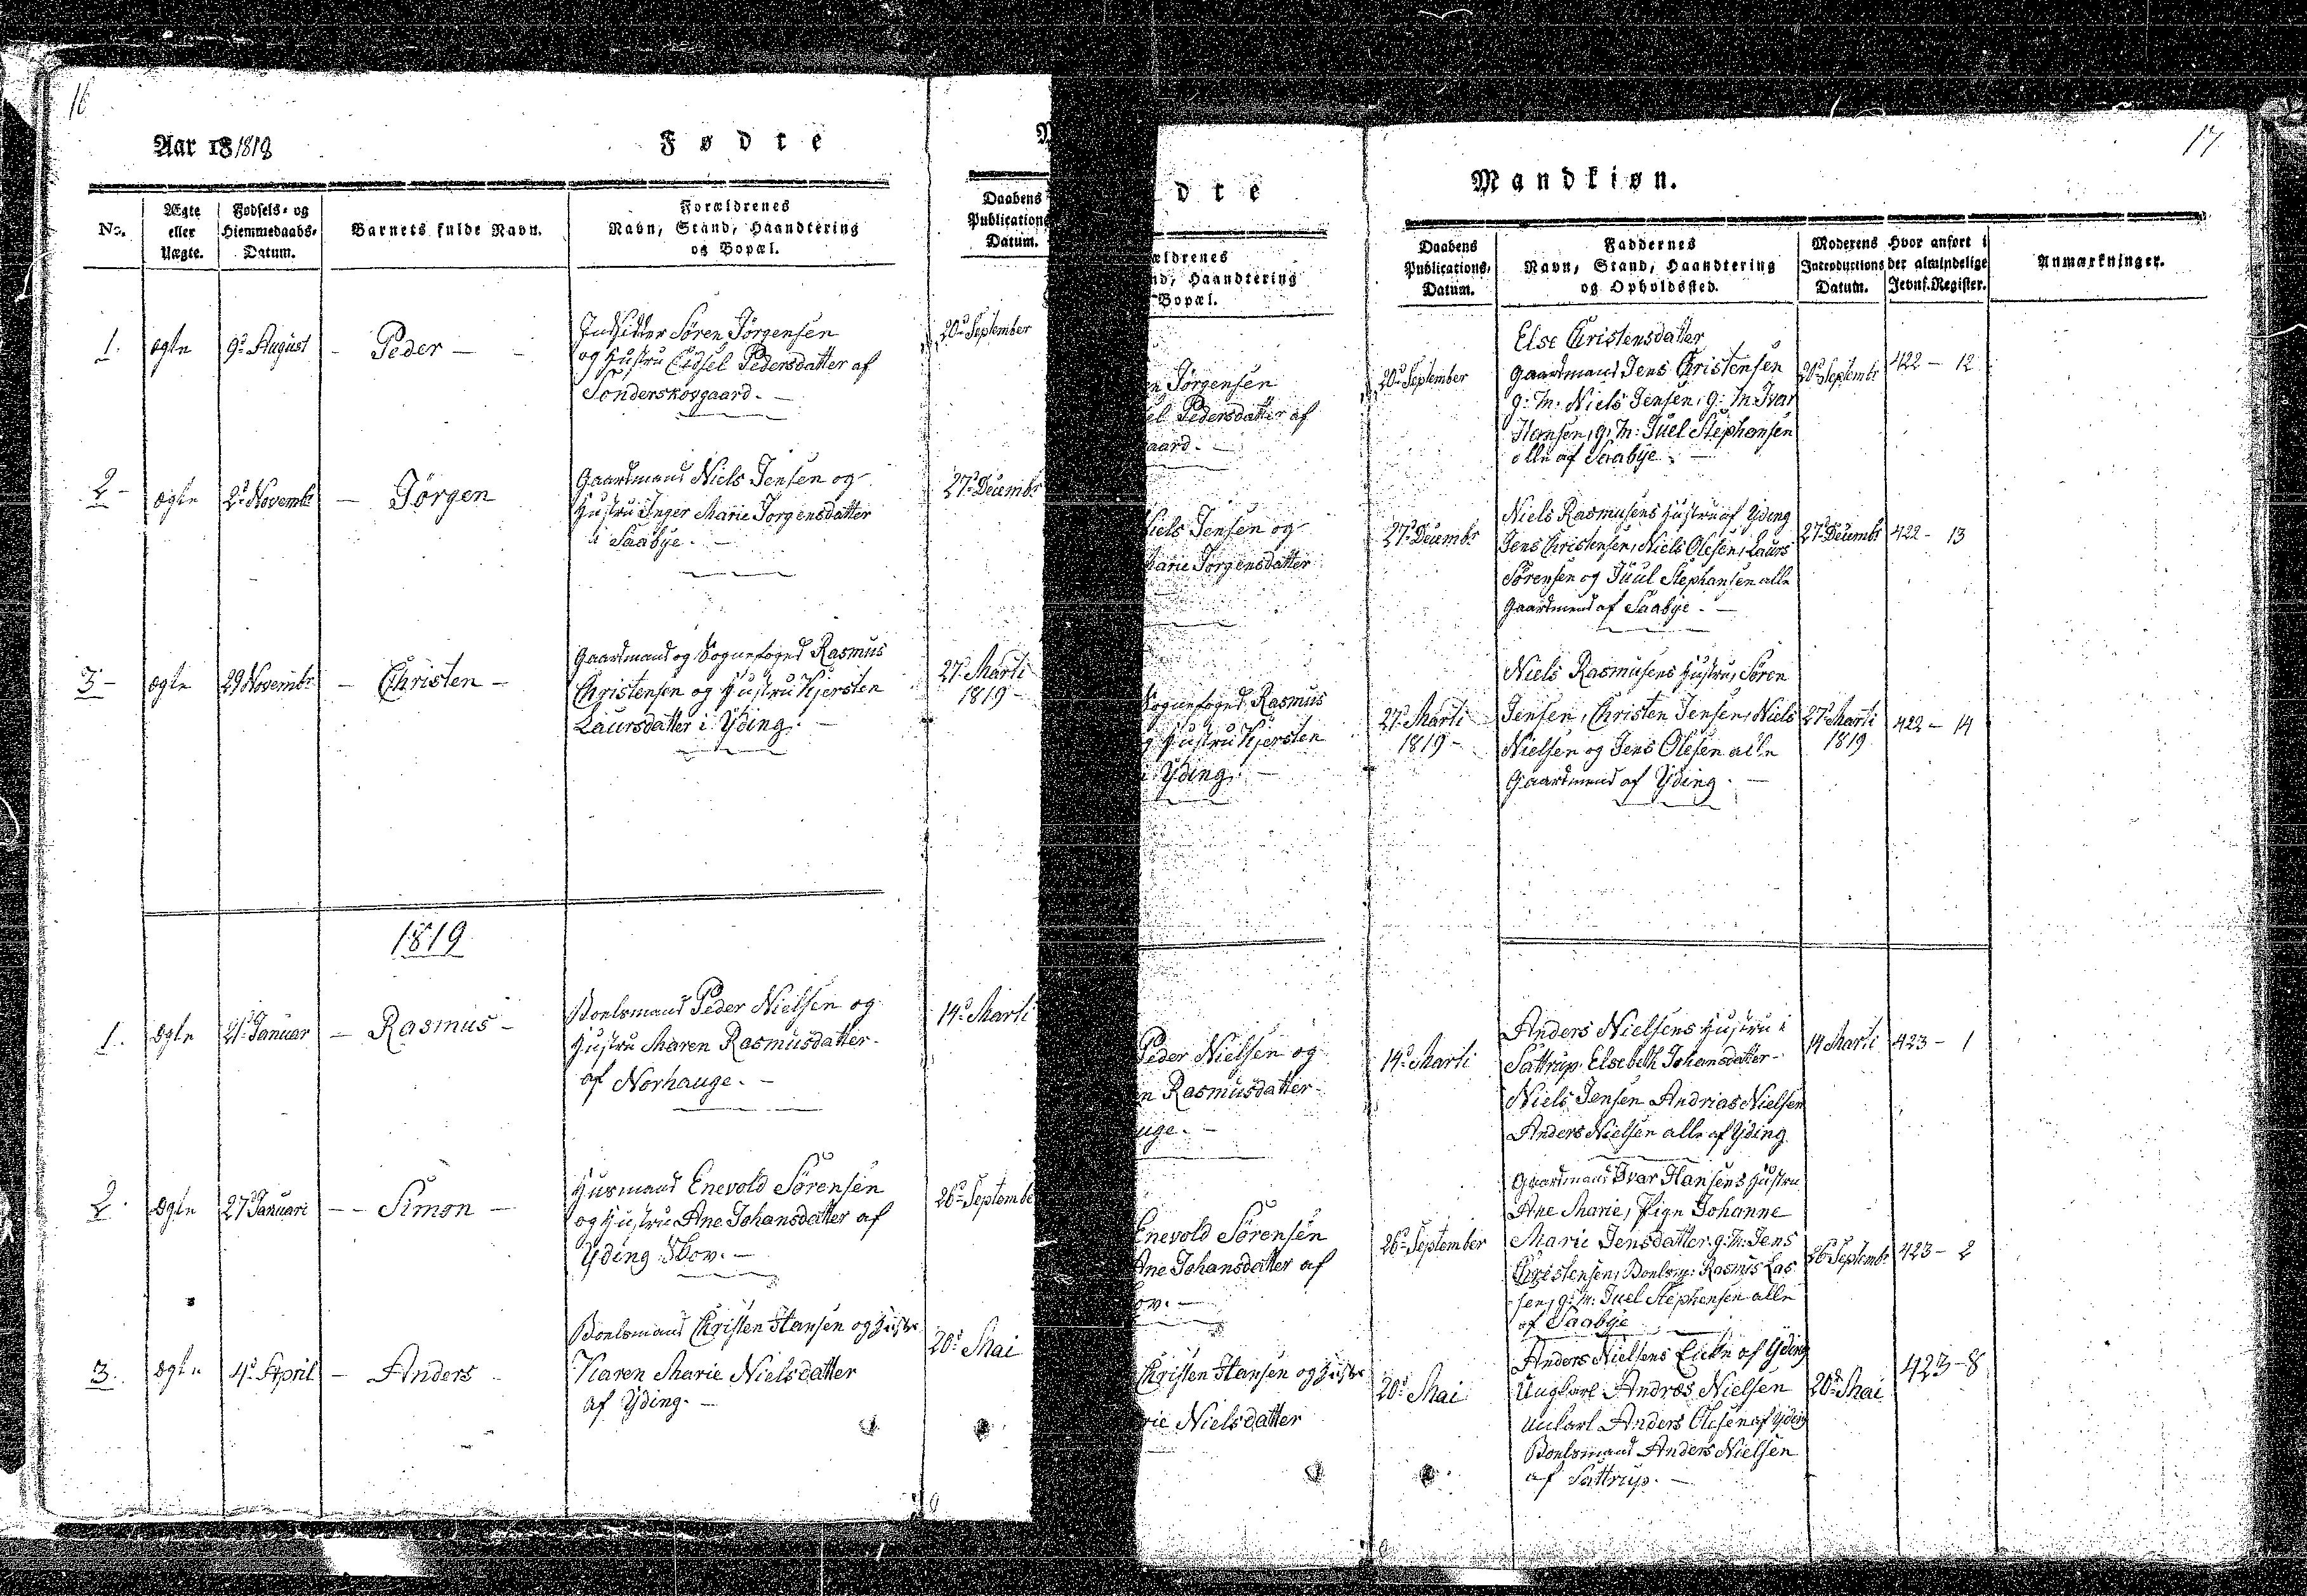 16
Aar 18 1818
Fødte
No.
Ægte
eller
Uægte.
Fødsels- og
Hiemmedaabs-
Datum.
Barnets fulde Navn.
Forældrenes
Navn, Stand, Haandtering
og Bopæl.
Daabens
Publications
Datum.
1.
ægte
9d August
- Peder -
Indsidder Sören Jörgensen
og Hustru Cidsel Pedersdatter af
Sönderskovgaard. -
20d September
2 -
ægte
2d Novembr
- Jörgen
Gaardmand Niels Jensen og
Hustru Inger Marie Jorgensdatter
i Saabye. -
27d Decembr
3 -
ægte
29 Novembr
- Christen -
Gaardmand og Sognefoged Rasmus
Christensen og Hustru Kjersten
Laursdatter i Yding. -
27d Marti
1819 -
1819
1.
ægte
21d Januar
- Rasmus -
Boelsmand Peder Nielsen og
Hustru Maren Rasmusdatter
af Norhauge. -
14d Marti
2.
ægte
27d Januari
- - Simon -
Husmand Enevold Sörensen
og Hustru Ane Johansdatter af
Yding Skov. -
26d Septembe
3.
ægte
4d April
- Anders
Boelsmand Christen Hansen og Hustr
Karen Marie Nielsdatter
af Yding. -
20d Mai
17
dte
Mandkiøn.
ældrenes
nd, Haandtering
Bopæl.
Daabens
Publications,
Datum.
Faddernes
Navn, Stand, Haandtering
og Opholdssted.
Moderens
Introductions
Datum.
Hvor anført i
der almindelige
Jevnf. Register.
Anmærkninger.
n Jörgensen
el Pedersdatter af
aard. -
20d September
Else Christensdatter
Gaardmand Jens Christensen
g: M: Niels Jensen, g: M: Ivar
Hansen, g: M: Juel Stephensen
alle af Saabye. -
20d Septembr
422 - 12
Niels Jensen og
Marie Jorgensdatter
27d Decembr
Niels Rasmusens Hustru af Yding
Jens Christensen, Niels Olesen, Laurs
Sörensen og Juul Stephansen alle
Gaardmend af Saabye. -
27d Decembr
422 - 13
Sognefoged Rasmus
g Hustru Kjersten
i Yding. -
27d Marti
1819 -
Niels Rasmusens Hustru, Sören
Jensen, Christen Jensen, Niels
Nielsen og Jens Olesen alle
Gaardmend af Yding. -
27d Marti
1819
422 - 14
Peder Nielsen og
n Rasmusdatter
uge. -
14d Marti
Anders Nielsens Hustru i
Sattrup. Elsebeth Johansdatter -
Niels Jensen Andrias Nielsen
Anders Nielsen alle af Yding
14 Marti
423 - 1
Enevold Sörensen
Ane Johansdatter af
ov. -
26d September
Gaardmand Ivar Hansens Hustru
Ane Marie, Pige Johanne
Marie Jensdatter, g: M: Jens
Christensen, Boelsm: Rasmus Las
sen, g: M: Juel Stephensen alle
af Saabye
26d Septembr
423 - 2
Christen Hansen og Hustr
rie Nielsdatter
20d Mai
Anders Nielsens Enke af Yding
Ungkarl Andræs Nielsen
Unkarl Anders Olesen af Yding
Boelsmand Anders Nielsen
af Sattrup. -
20d Mai
423 - 8